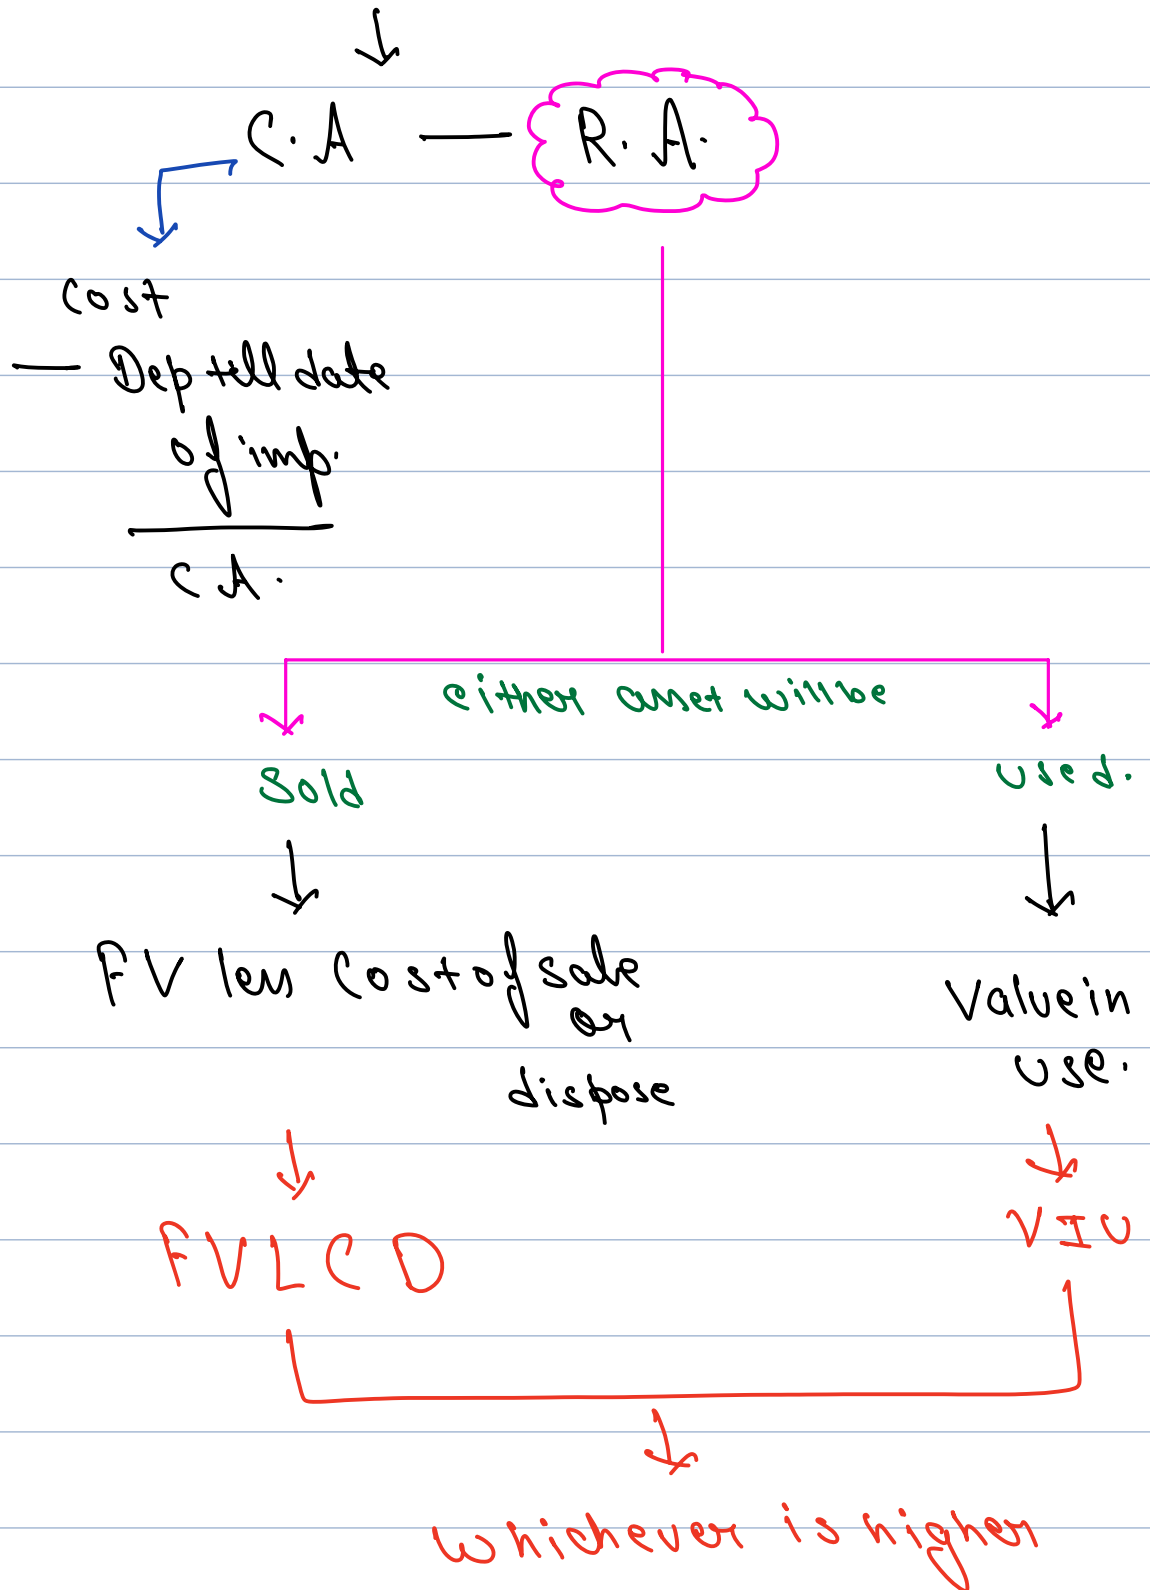 C.A — R.A.
Cost
— Dep till date
of imp.
C.A.
either asset will be
Sold
used.
FV less Cost of sale
or
dispose
Value in
use.
FVLCD
VIU
whichever is higher